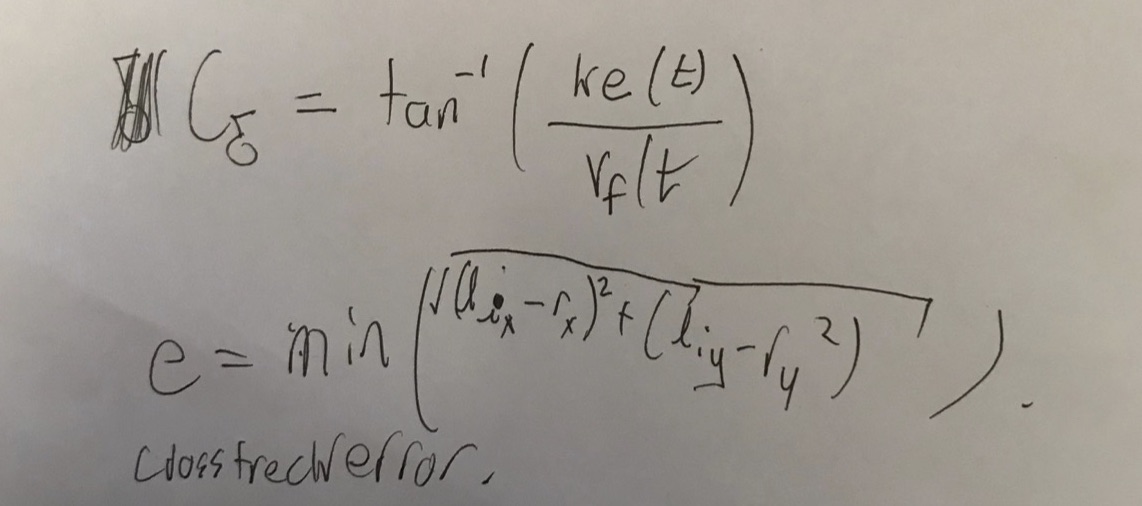 C_δ = tan⁻¹ ( ke(t) / v_f(t )
e = min ( √(l_ix - r_x)² + (l_iy - r_y²) ).
crosstreckerror.